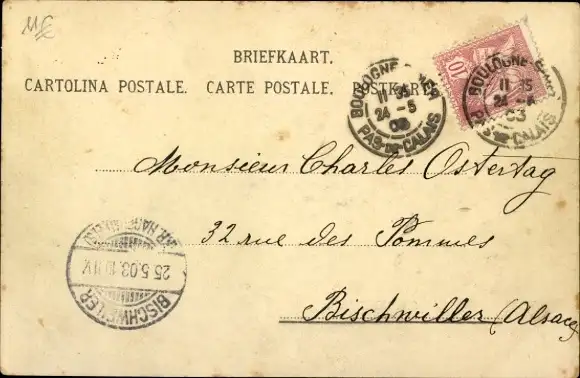 BRIEFKAART.
CARTOLINA POSTALE. CARTE POSTALE. POSTKARTE
BOULOGNE-S-MER
11 15
24 -5
03
PAS-DE-CALAIS
10
BOULOGNE-S-MER
11 15
24 -5
03
PAS-DE-CALAIS
Monsieur Charles Ostertag
32 rue des Pommes
Bischwiller (Alsace
BISCHWEILER
25.5.03.